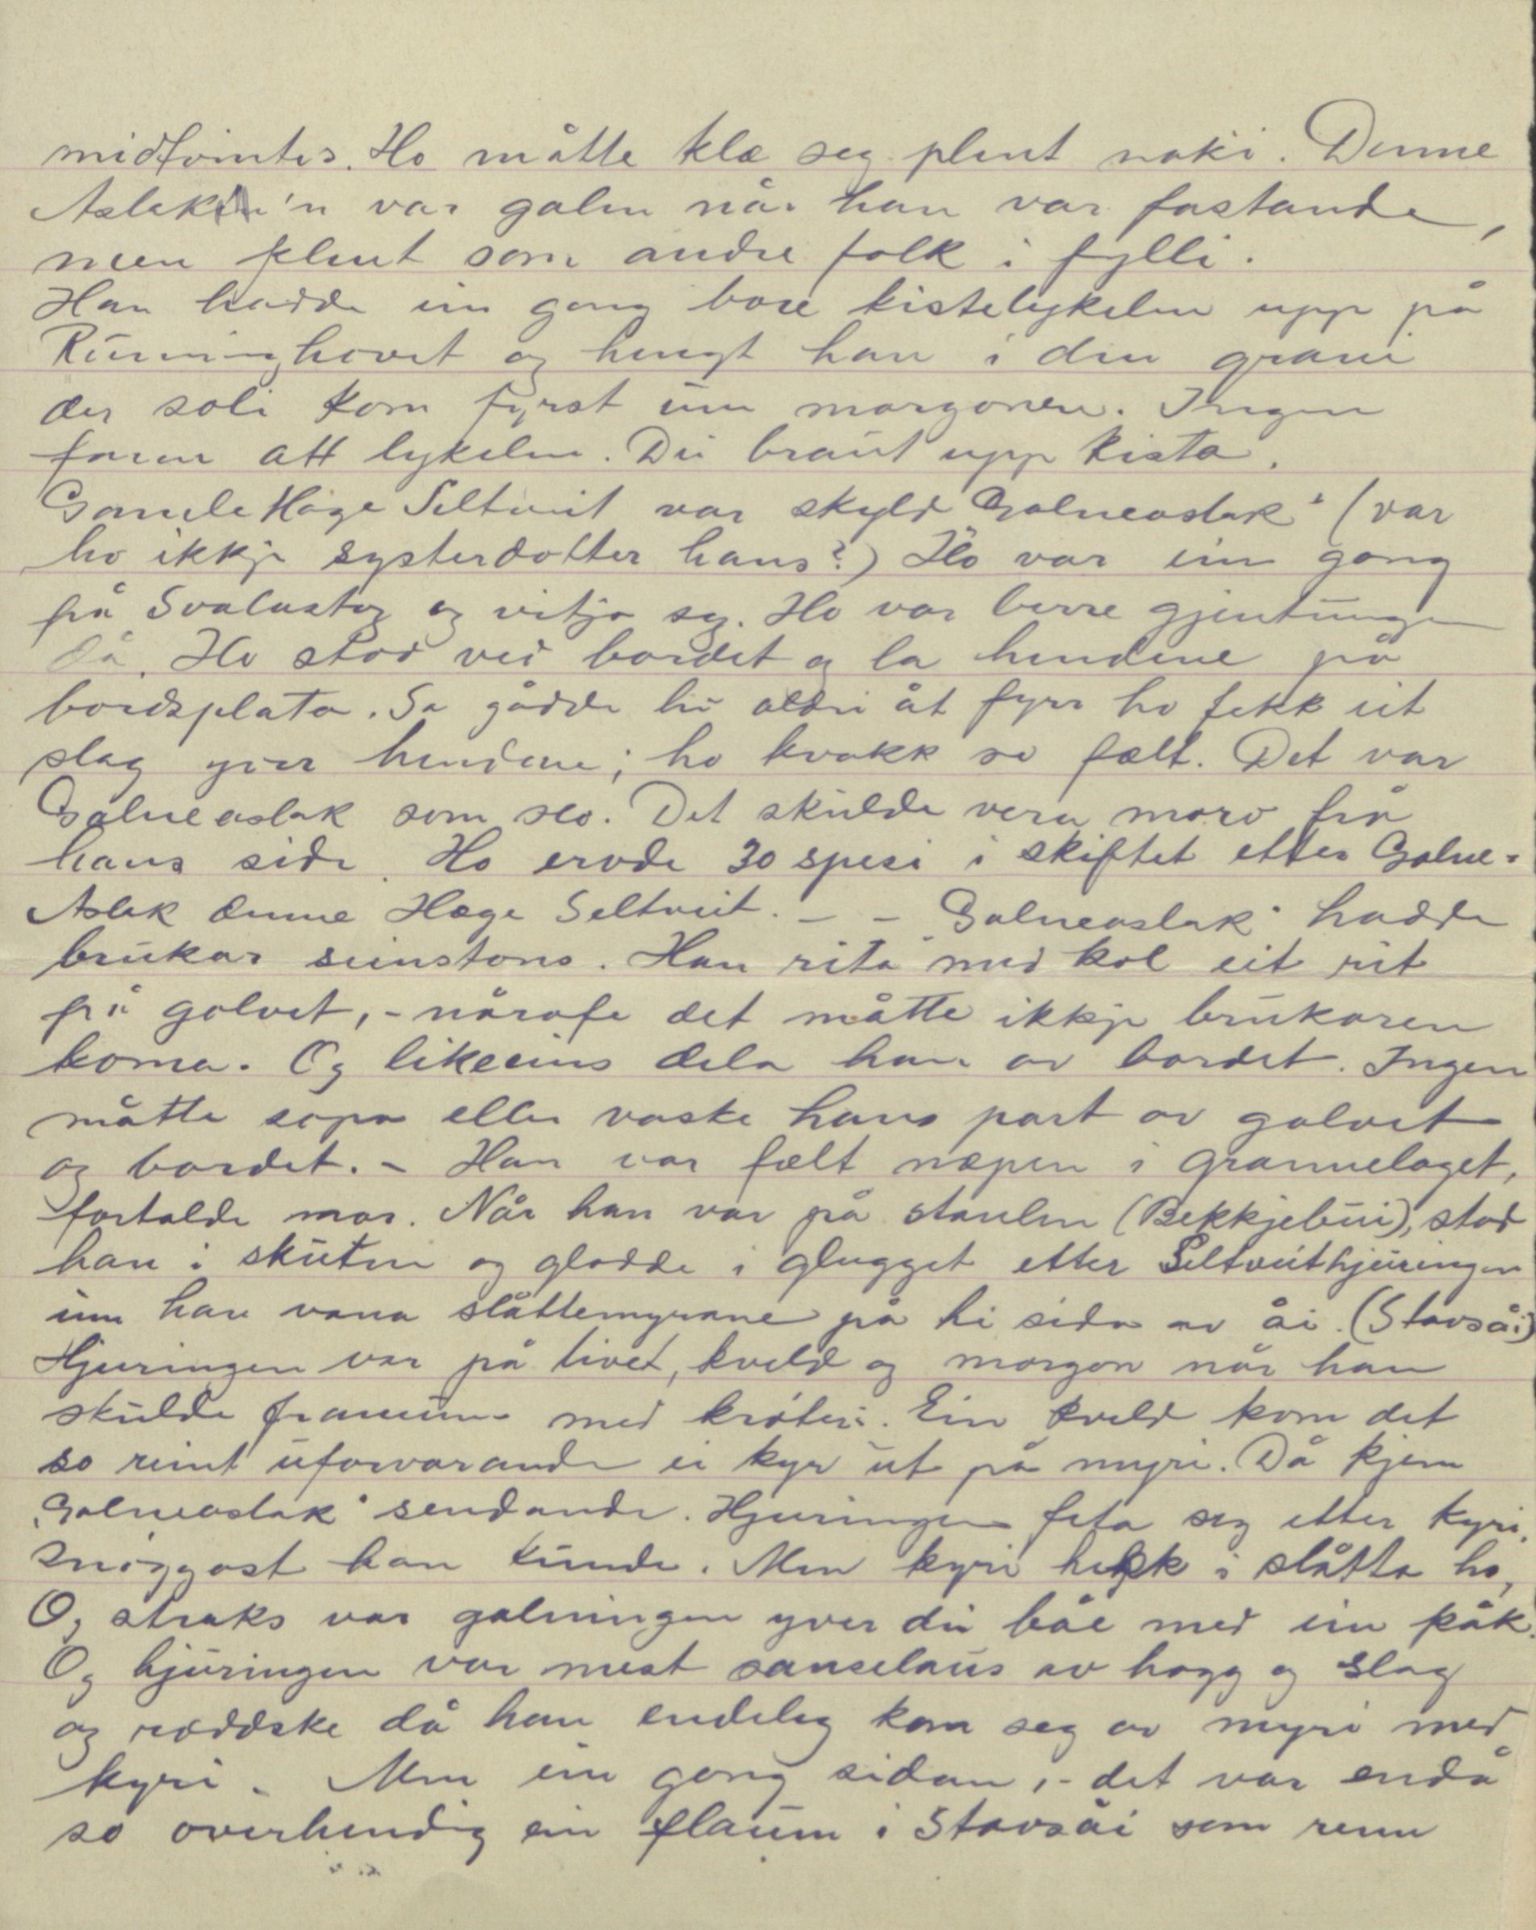 midtvintes. Ho måtte klæ seg plent naki. Denne
Aslak'n var galen når han var fastande,
men plent som andre folk i fylli.
Han hadde ein gong bore kistelykelen upp på
Runninghovet og hengt han i den grani
der soli kom fyrst um morgonen. Ingen
fann att lykelen. Dei braut upp kista.
Gamle Hæge Seltveit var skyld "Galneaslak" (var
ho ikkje systerdotter hans?) Ho var ein gong
på Svalastog og vitja seg. Ho var berre gjentungen
då. Ho stod ved bordet og la hendene på
bordsplata. So gådde ho aldri åt fyrr ho fekk eit
slag yver hendene; ho kvakk so fælt. Det var
Galneaslak som slo. Det skulde vera moro frå
hans side. Ho ervde 30 spesi i skiftet etter Galne-
Aslak denne Hæge Seltveit. – – "Galneaslak" hadde
brukar seinstons. Han rita med kol eit rit
på golvet, - nårafe det måtte ikkje brukaren
koma. Og likeeins dela han av bordet. Ingen
måtte sopa eller vaske hans part av golvet
og bordet. – Han var fælt næpen i grannelaget,
fortalde mor. Når han var på staulen (Bekkjebui), stod
han i skuten og glodde i glugget etter Seltveithjuringen
um han vana slåttemyrane på hi sida av åi. (Stavsåi)
Hjuringen var på livet, kveld og morgon når han
skulde framum med krøteri. Ein kveld kom det
so reint uforvarande ei kyr ut på myri. Då kjem
"Galneaslak" sendande. Hjuringen feta seg etter kyri,
snøggast han kunde. Men kyri hekk i slåtta ho,
Og straks var galningen yver dei båe med ein påk.
Og hjuringen var mest sanselaus av hogg og slag
og ræddske då han endeleg kom seg av myri med
kyri. Men ein gong sidan, - det var endå
so overhendig ein flaum i Stavsåi som renn